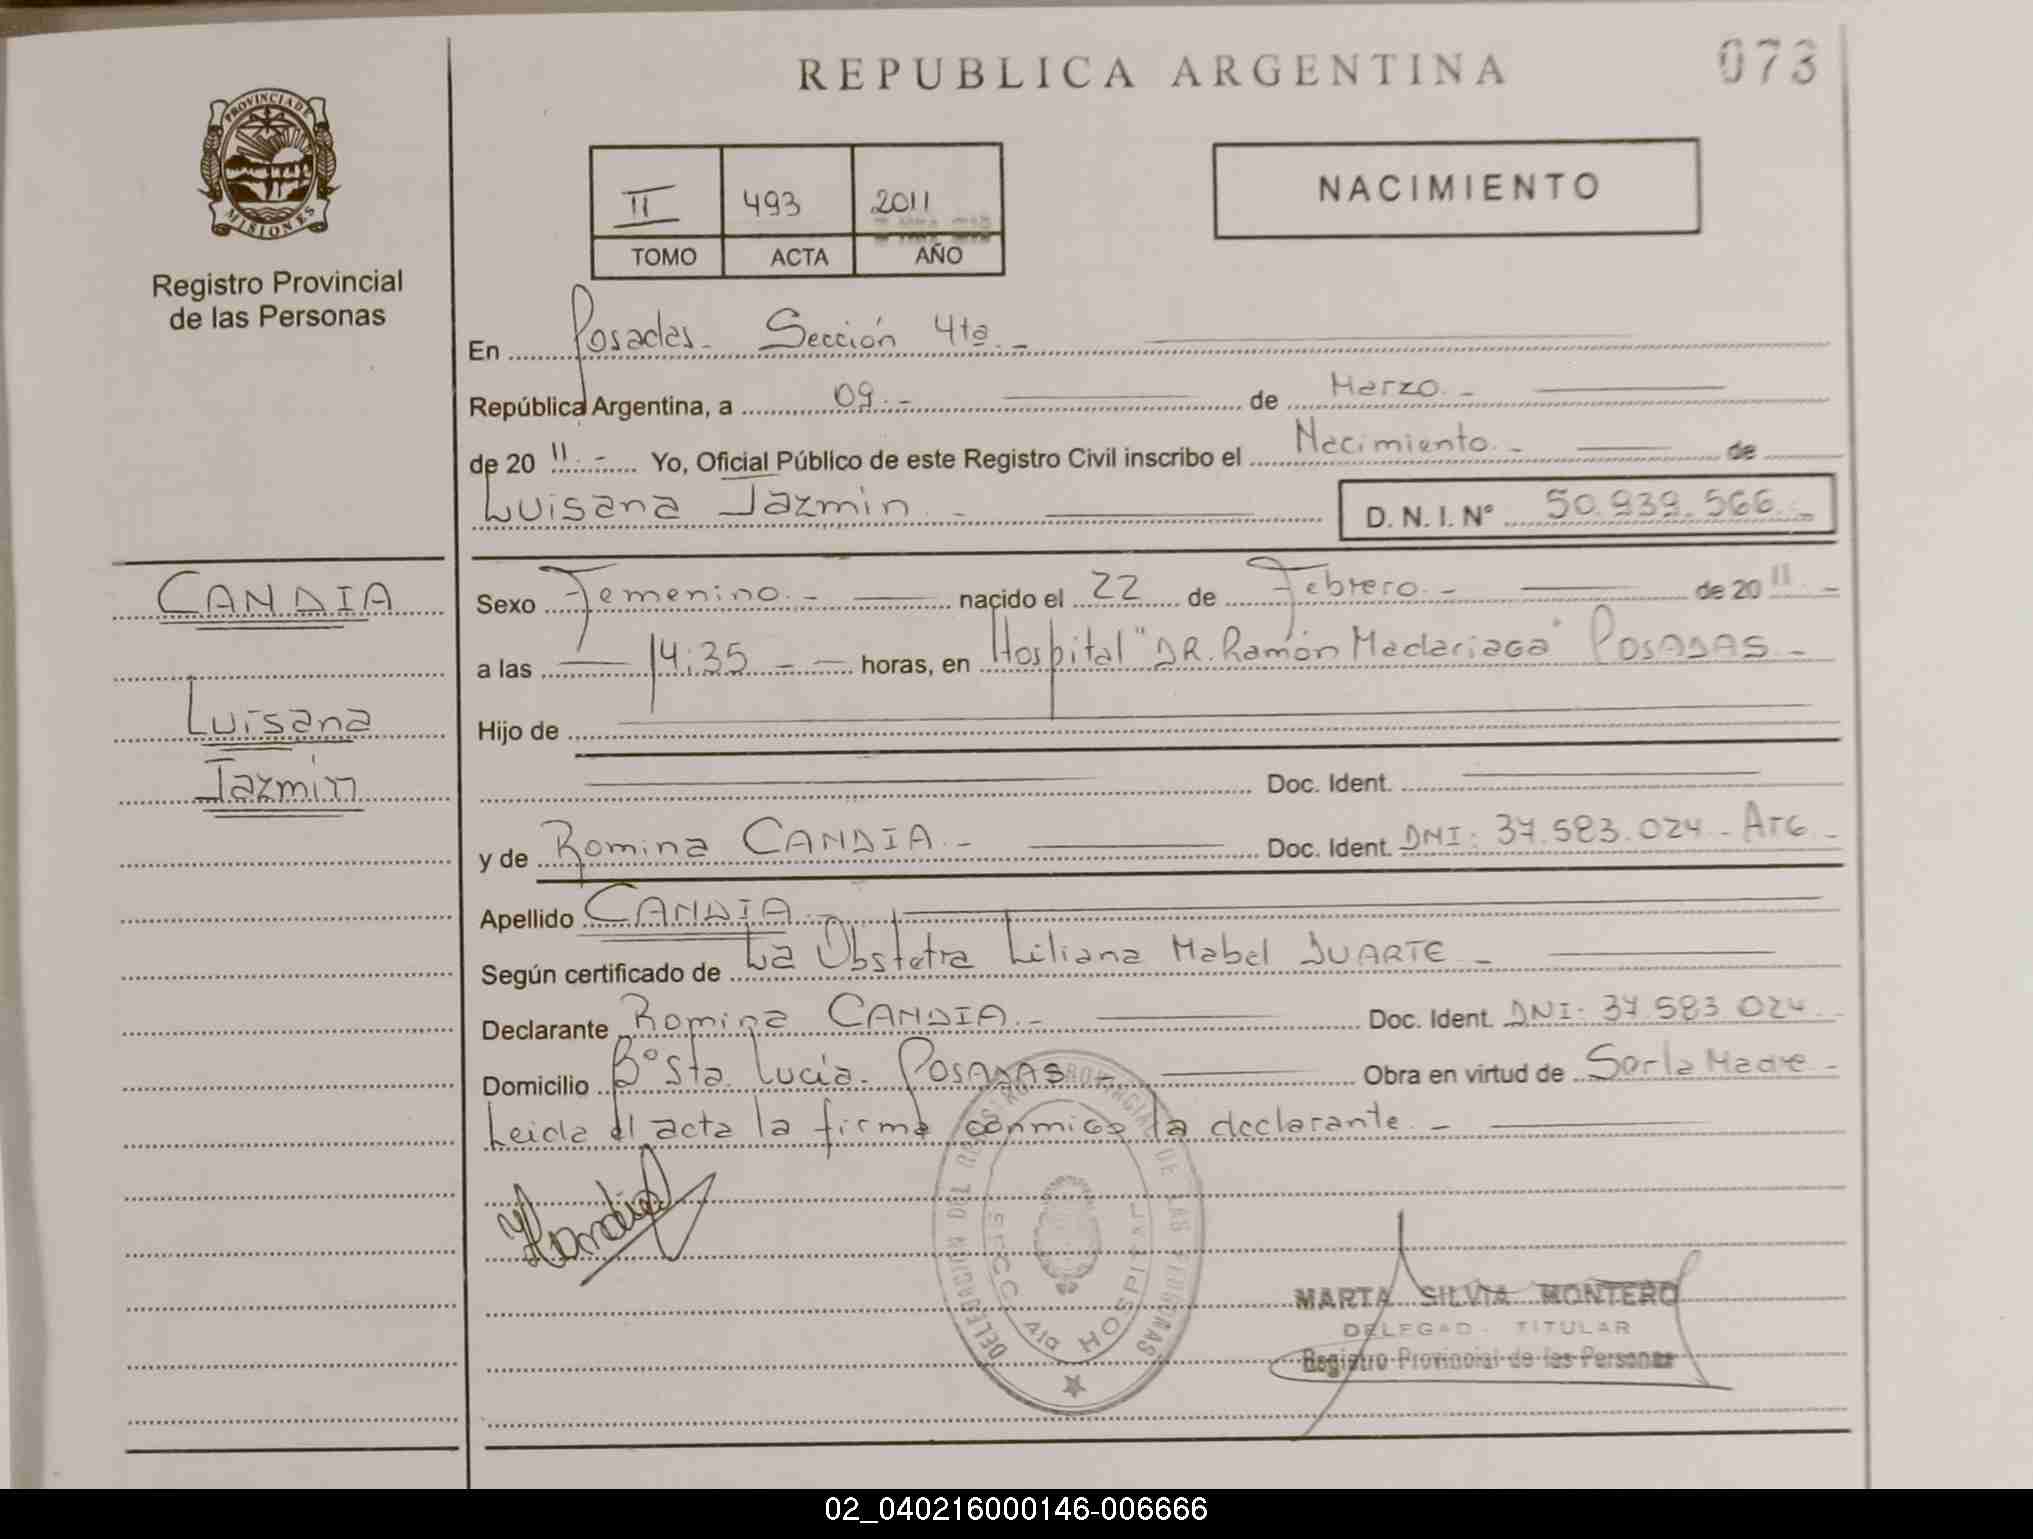 REPUBLICA ARGENTINA
073
PROVINCIA DE
MISIONES
Registro Provincial
de las Personas
II 493 2011
TOMO ACTA AÑO
NACIMIENTO
En Posadas - Sección 4ta. -
República Argentina, a 09. - de Marzo. -
de 20 11. - Yo, Oficial Público de este Registro Civil inscribo el Nacimiento. - de
Luisana Jazmin. - D. N. I. Nº 50.939.566. -
CANDIA
Luisana
Jazmin
Sexo Femenino. - nacido el 22 de Febrero. - de 20 11. -
a las 14:35 - - horas, en Hospital "DR. Ramón Madariaga" POSADAS. -
Hijo de
Doc. Ident.
y de Romina CANDIA. - Doc. Ident. DNI: 37.583.024 - Arg. -
Apellido CANDIA. -
Según certificado de La Obstetra Liliana Mabel DUARTE -
Declarante Romina CANDIA. - Doc. Ident. DNI: 37.583.024.
Domicilio Bº Sta. Lucía. POSADAS - Obra en virtud de Ser la Madre -
Leida el acta la firma conmigo la declarante. -
Candia
DELEGACION DEL REGISTRO PROVINCIAL DE LAS PERSONAS
SECC. 4ta HOSPITAL
MARTA SILVIA MONTERO
DELEGAD TITULAR
Registro Provincial de las Personas
02_040216000146-006666